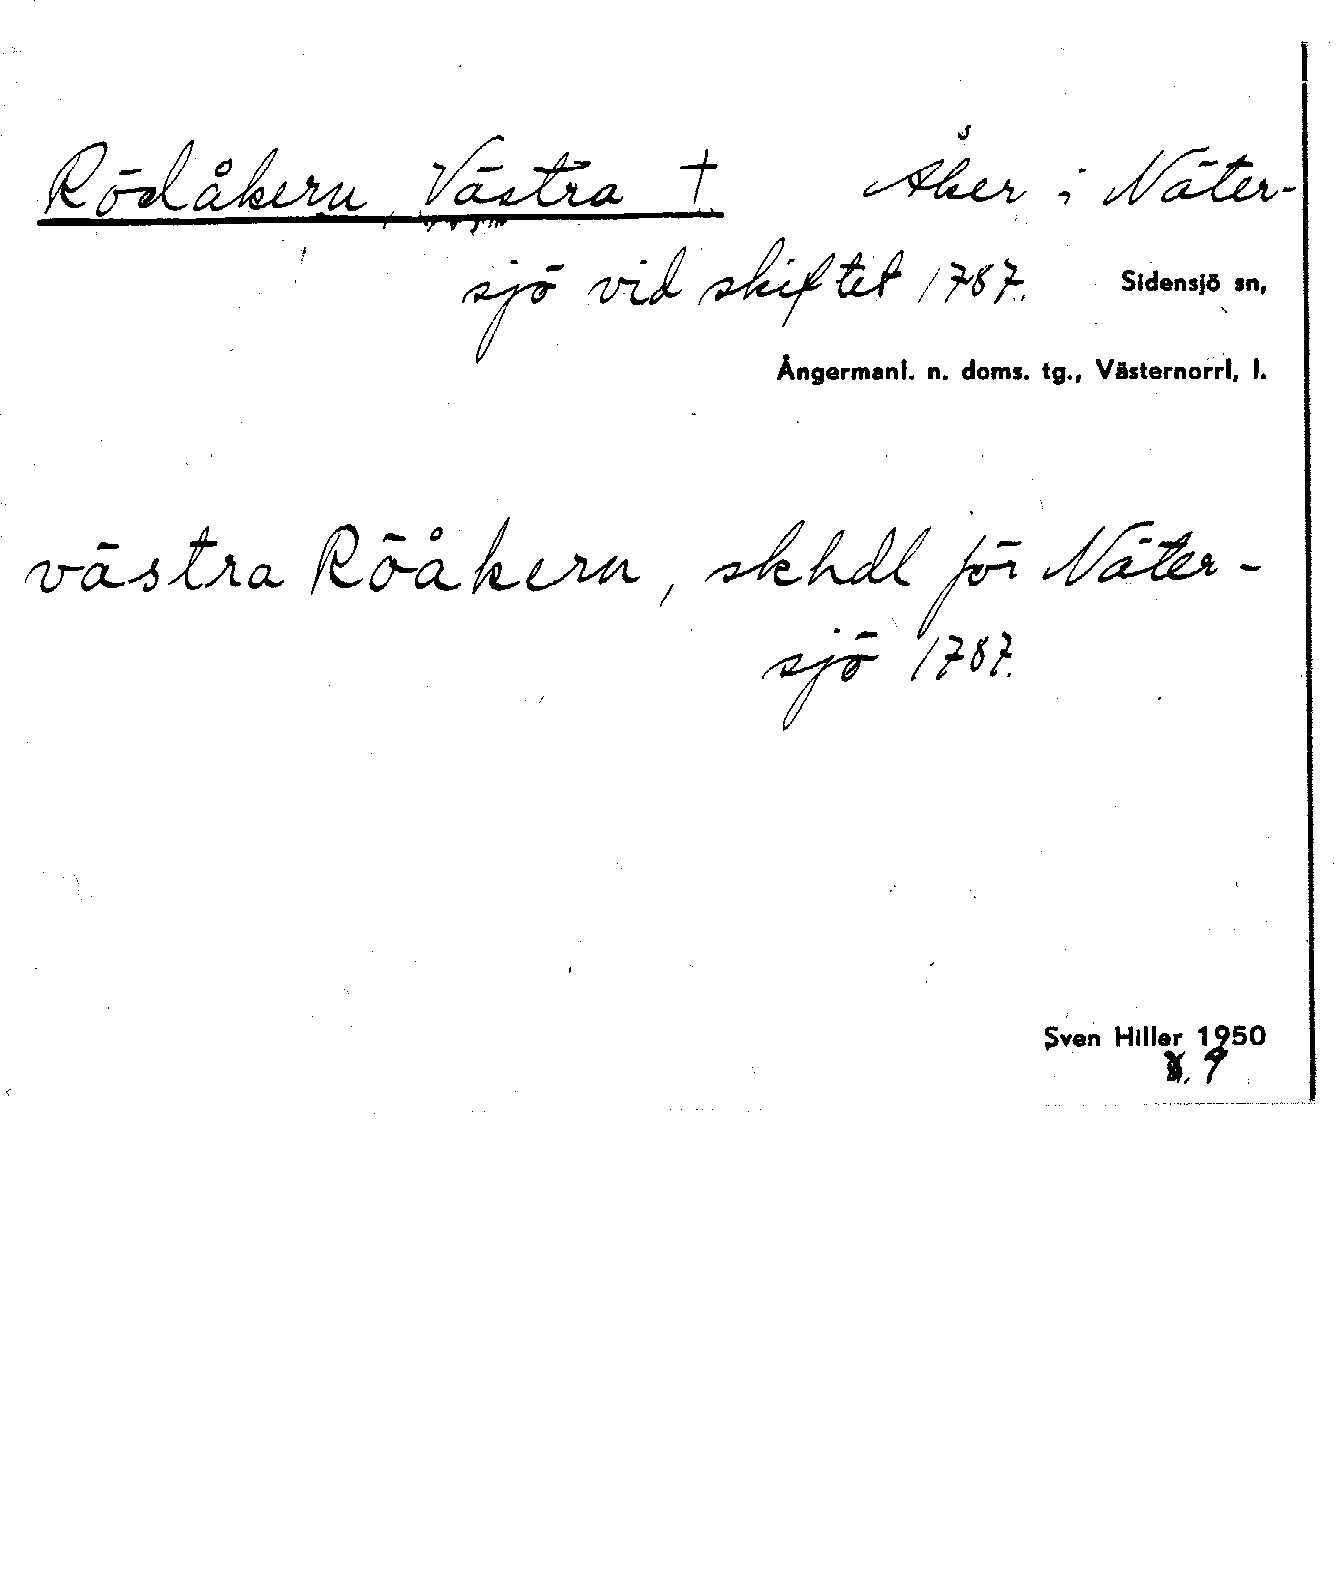 Rödåkern, Västra † Åker i Näter-
sjö vid skiftet 1787. Sidensjö sn,
Ångermanl. n. doms. tg., Västernorrl, l.
västra Röåkern, skhdl för Näter-
sjö 1787.
Sven Hiller 1950